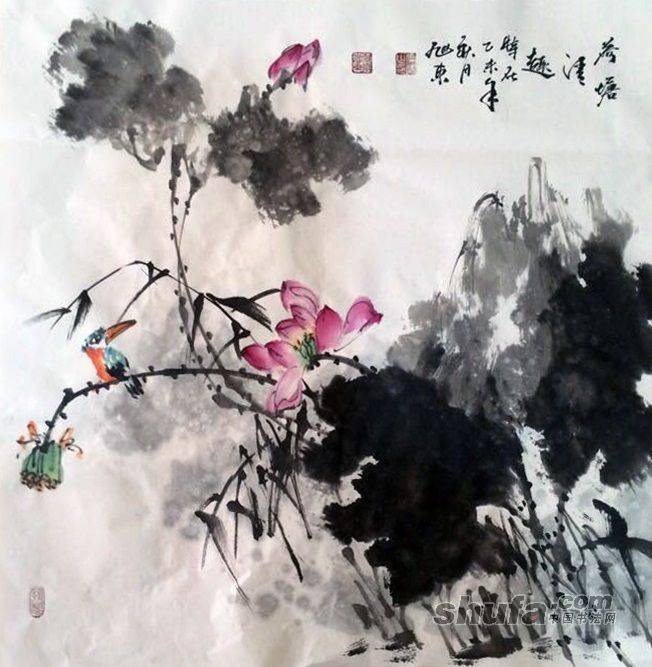 荷塘
清
趣
時在
乙未年
夏月
旭东
shufa.com
中国书法网